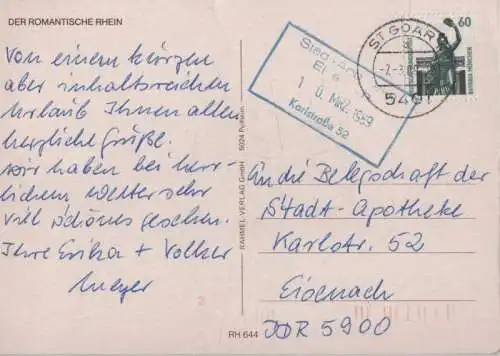 DER ROMANTISCHE RHEIN
Von einem kurzen
aber inhaltsreichen
Urlaub Ihnen allen
herzliche Grüße.
Wir haben bei herr-
lichem Wetter sehr
viel Schönes gesehen.
Ihre Erika + Volker
Meyer
RAHMEL-VERLAG GmbH 5024 Pulheim
RH 644
2
1 0. MRZ. 1989
Karlstraße 52
ST GOAR
5401
60
An die Belegschaft der
Stadt-Apotheke
Karlstr. 52
Eisenach
DDR 5900